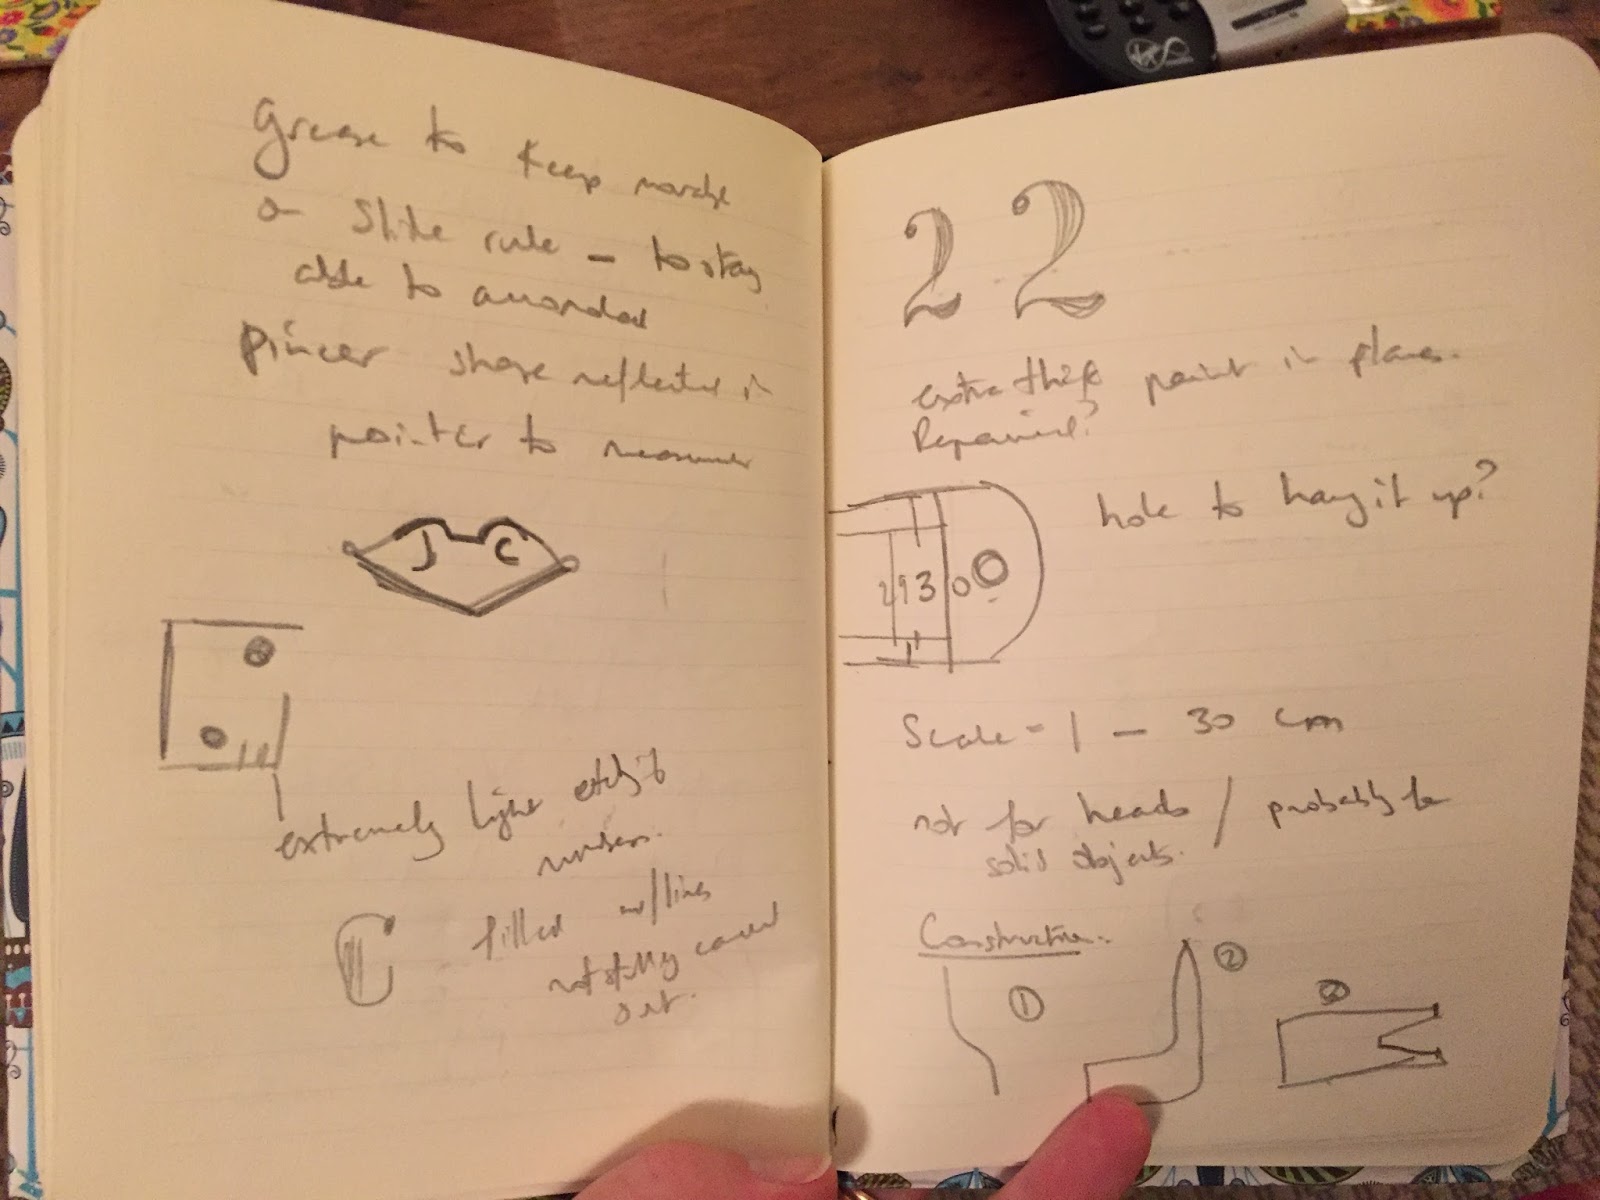 Grease to keep
a slide rule - to stay
able to
pincer shape reflected in
pointer to measure
J C
extremely light etching
numbers.
filled w/lines
not fully carved
out.
C
2 2
extra thick paint in places.
Repaired?
hole to hang it up?
29 30
Scale - 1 - 30 cm
not for heads / probably for
solid objects.
Construction.
1
2